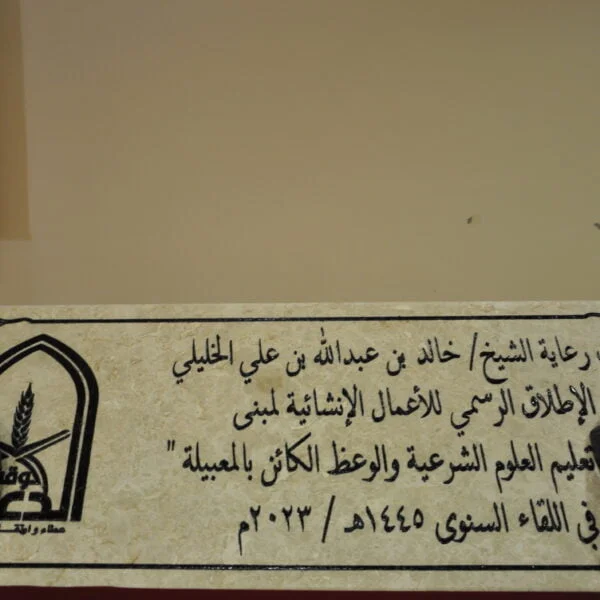 رعاية الشيخ/ خالد بن عبدالله بن علي الخليلي
الإطلاق الرسمي للأعمال الإنشائية لمبنى
تعليم العلوم الشرعية والوعظ الكائن بالمعبيلة "
في اللقاء السنوى ١٤٤٥هـ / ٢٠٢٣م